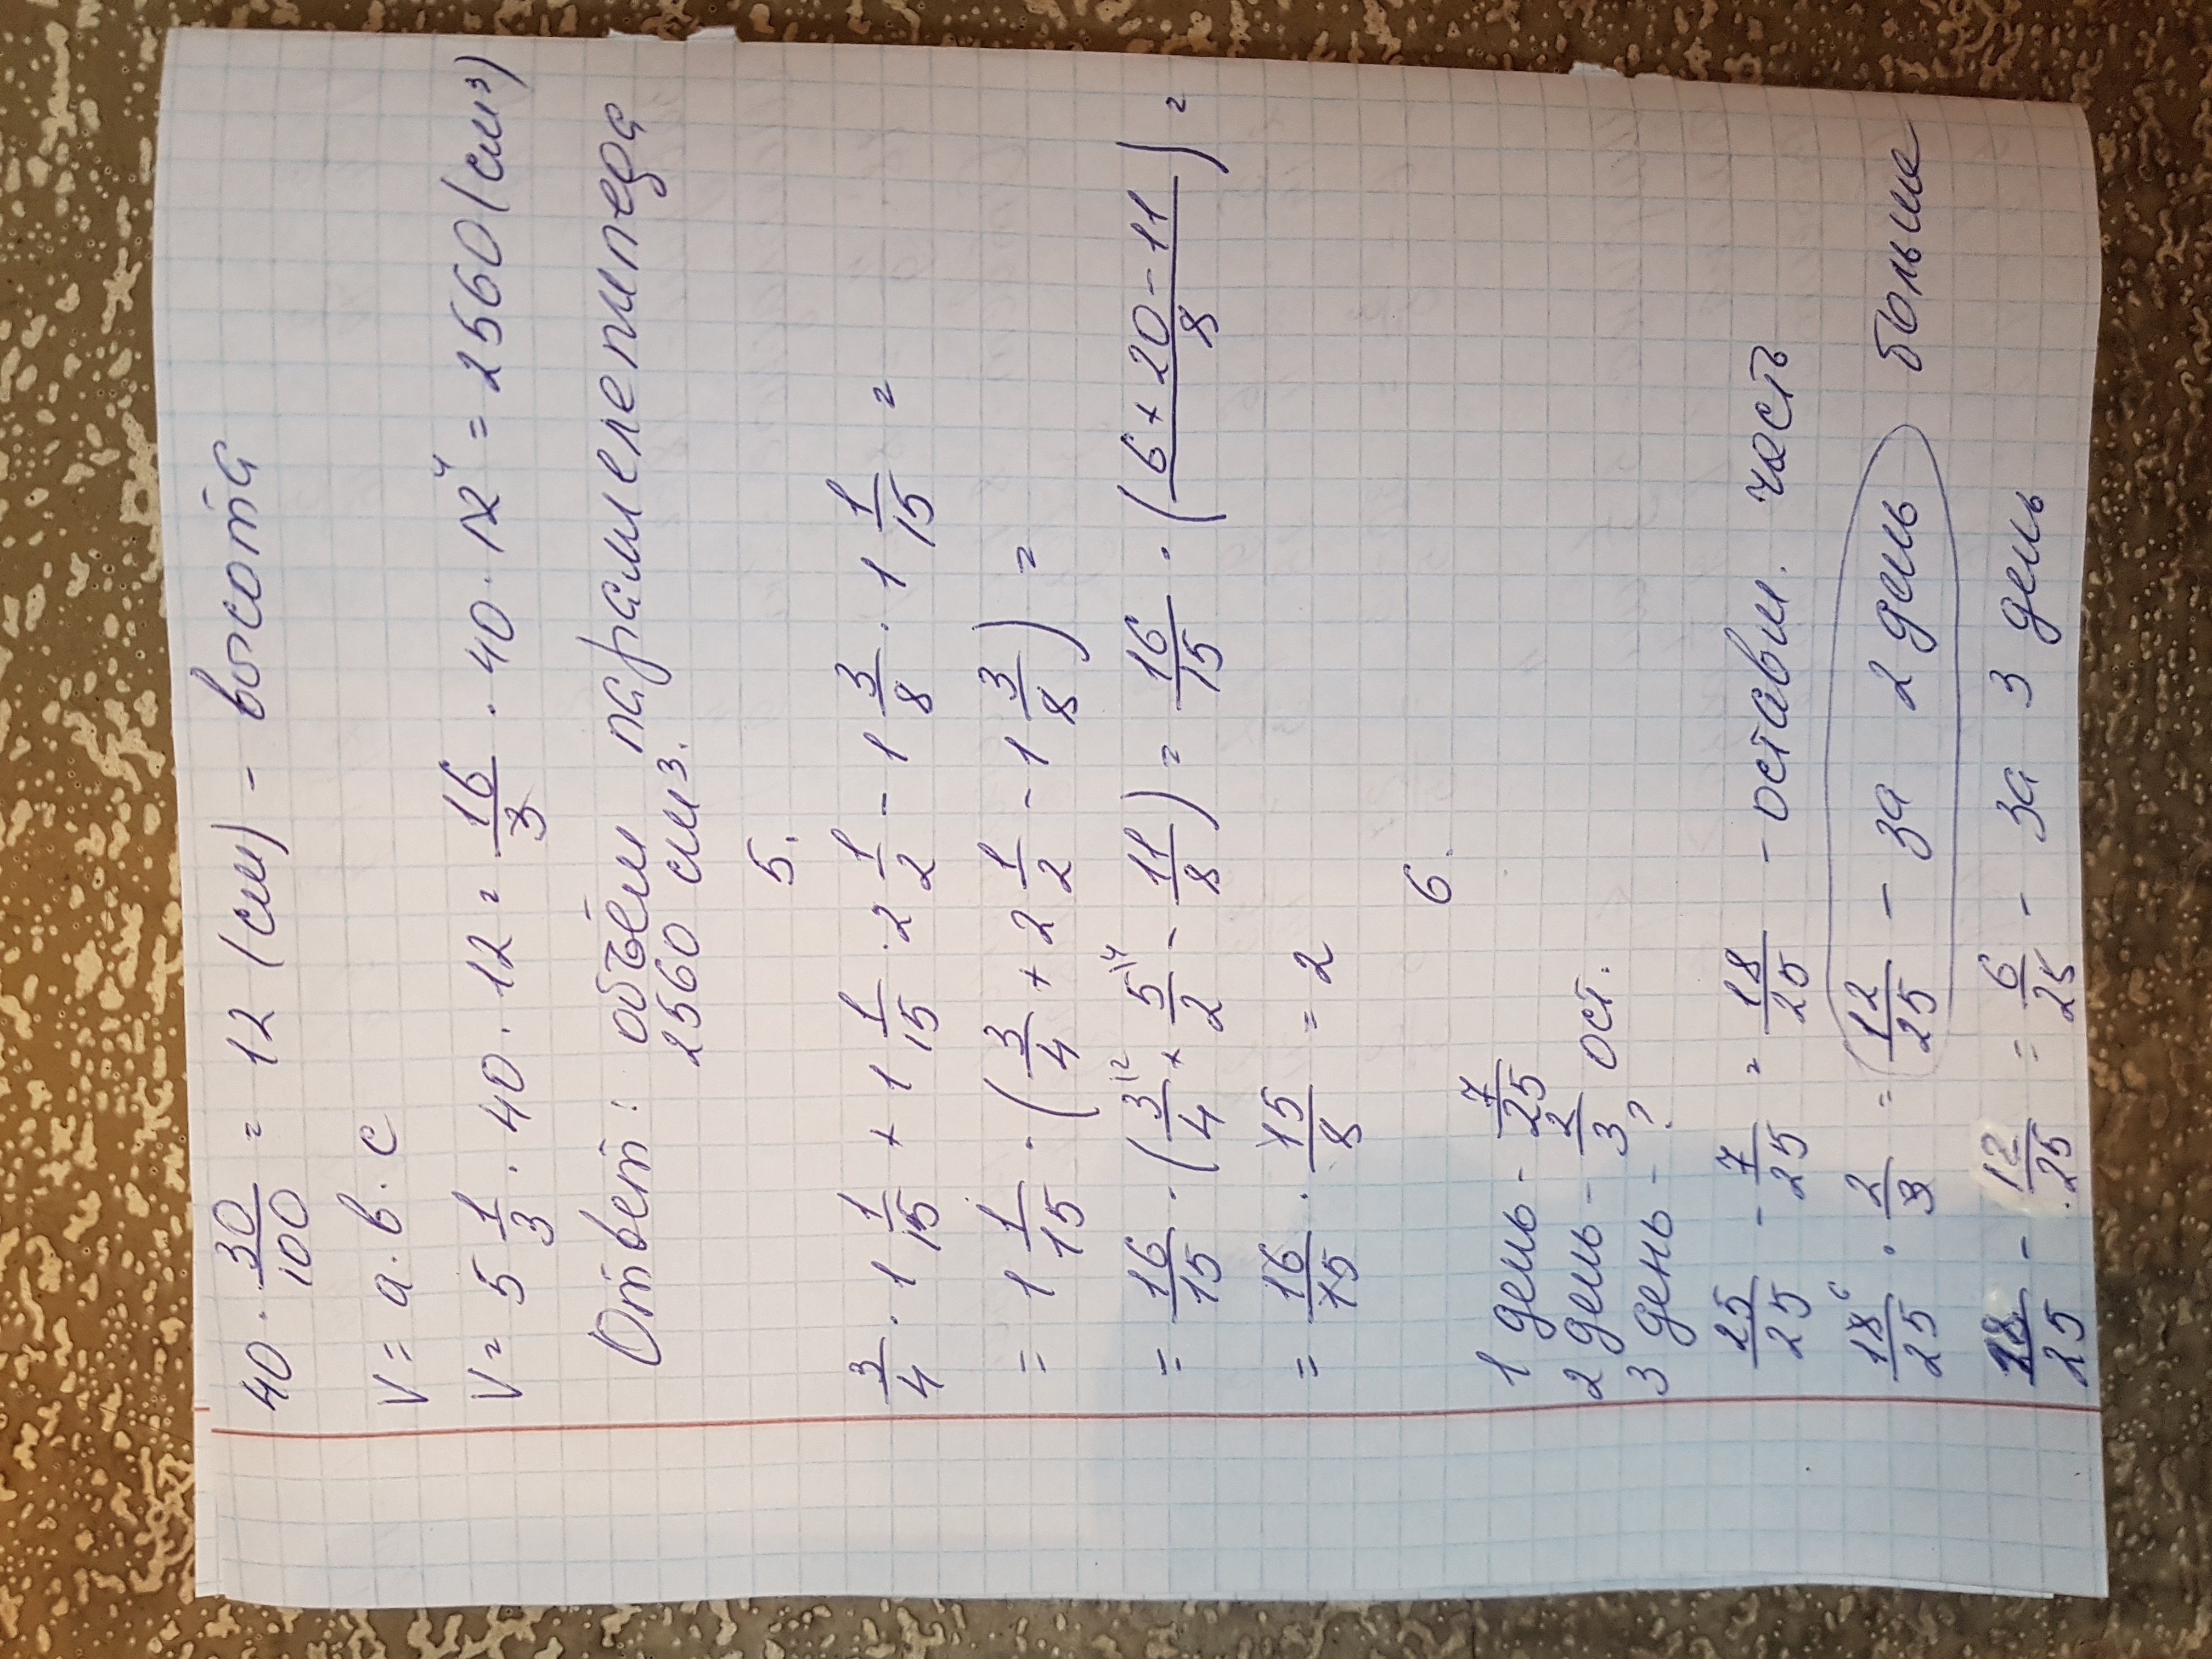 40 · 30/100 = 12 (см) - высота
V = a · b · c
V = 5 1/3 · 40 · 12 = 16/3 · 40 · 12 ⁴ = 2560 (см³)
Ответ: объём параллелепипеда
2560 см³.
5.
3/4 · 1 1/15 + 1 1/15 · 2 1/2 - 1 3/8 · 1 1/15 =
= 1 1/15 · (3/4 + 2 1/2 - 1 3/8) =
= 16/15 · (3/4 \² + 5/2 \⁴ - 11/8) = 16/15 · (6 + 20 - 11/8) =
= 16/15 · 15/8 = 2
6.
1 день - 7/25
2 день - 2/3 ост.
3 день - ?
25/25 - 7/25 = 18/25 - оставш. часть
18/25 ⁶ · 2/3 = 12/25 - за 2 день больше
18/25 - 12/25 = 6/25 - за 3 день